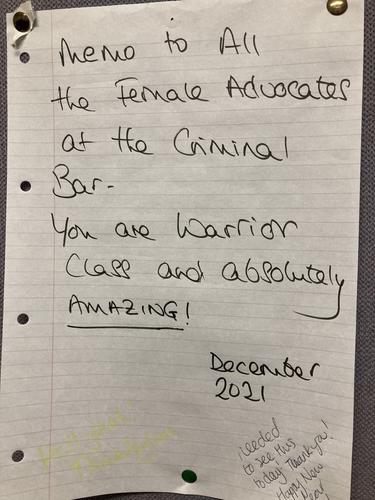 Memo to All
the Female Advocates
at the Criminal
Bar-
You are Warrior
Class and absolutely
AMAZING!
December
2021
needed
to see this
today! Thank you!
Happy New
Year